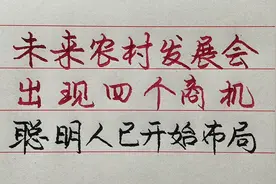 未来农村发展会
出现四个商机
聪明人已开始布局